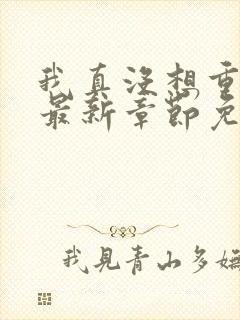 我真没想重
最新章节免
我见青山多妩